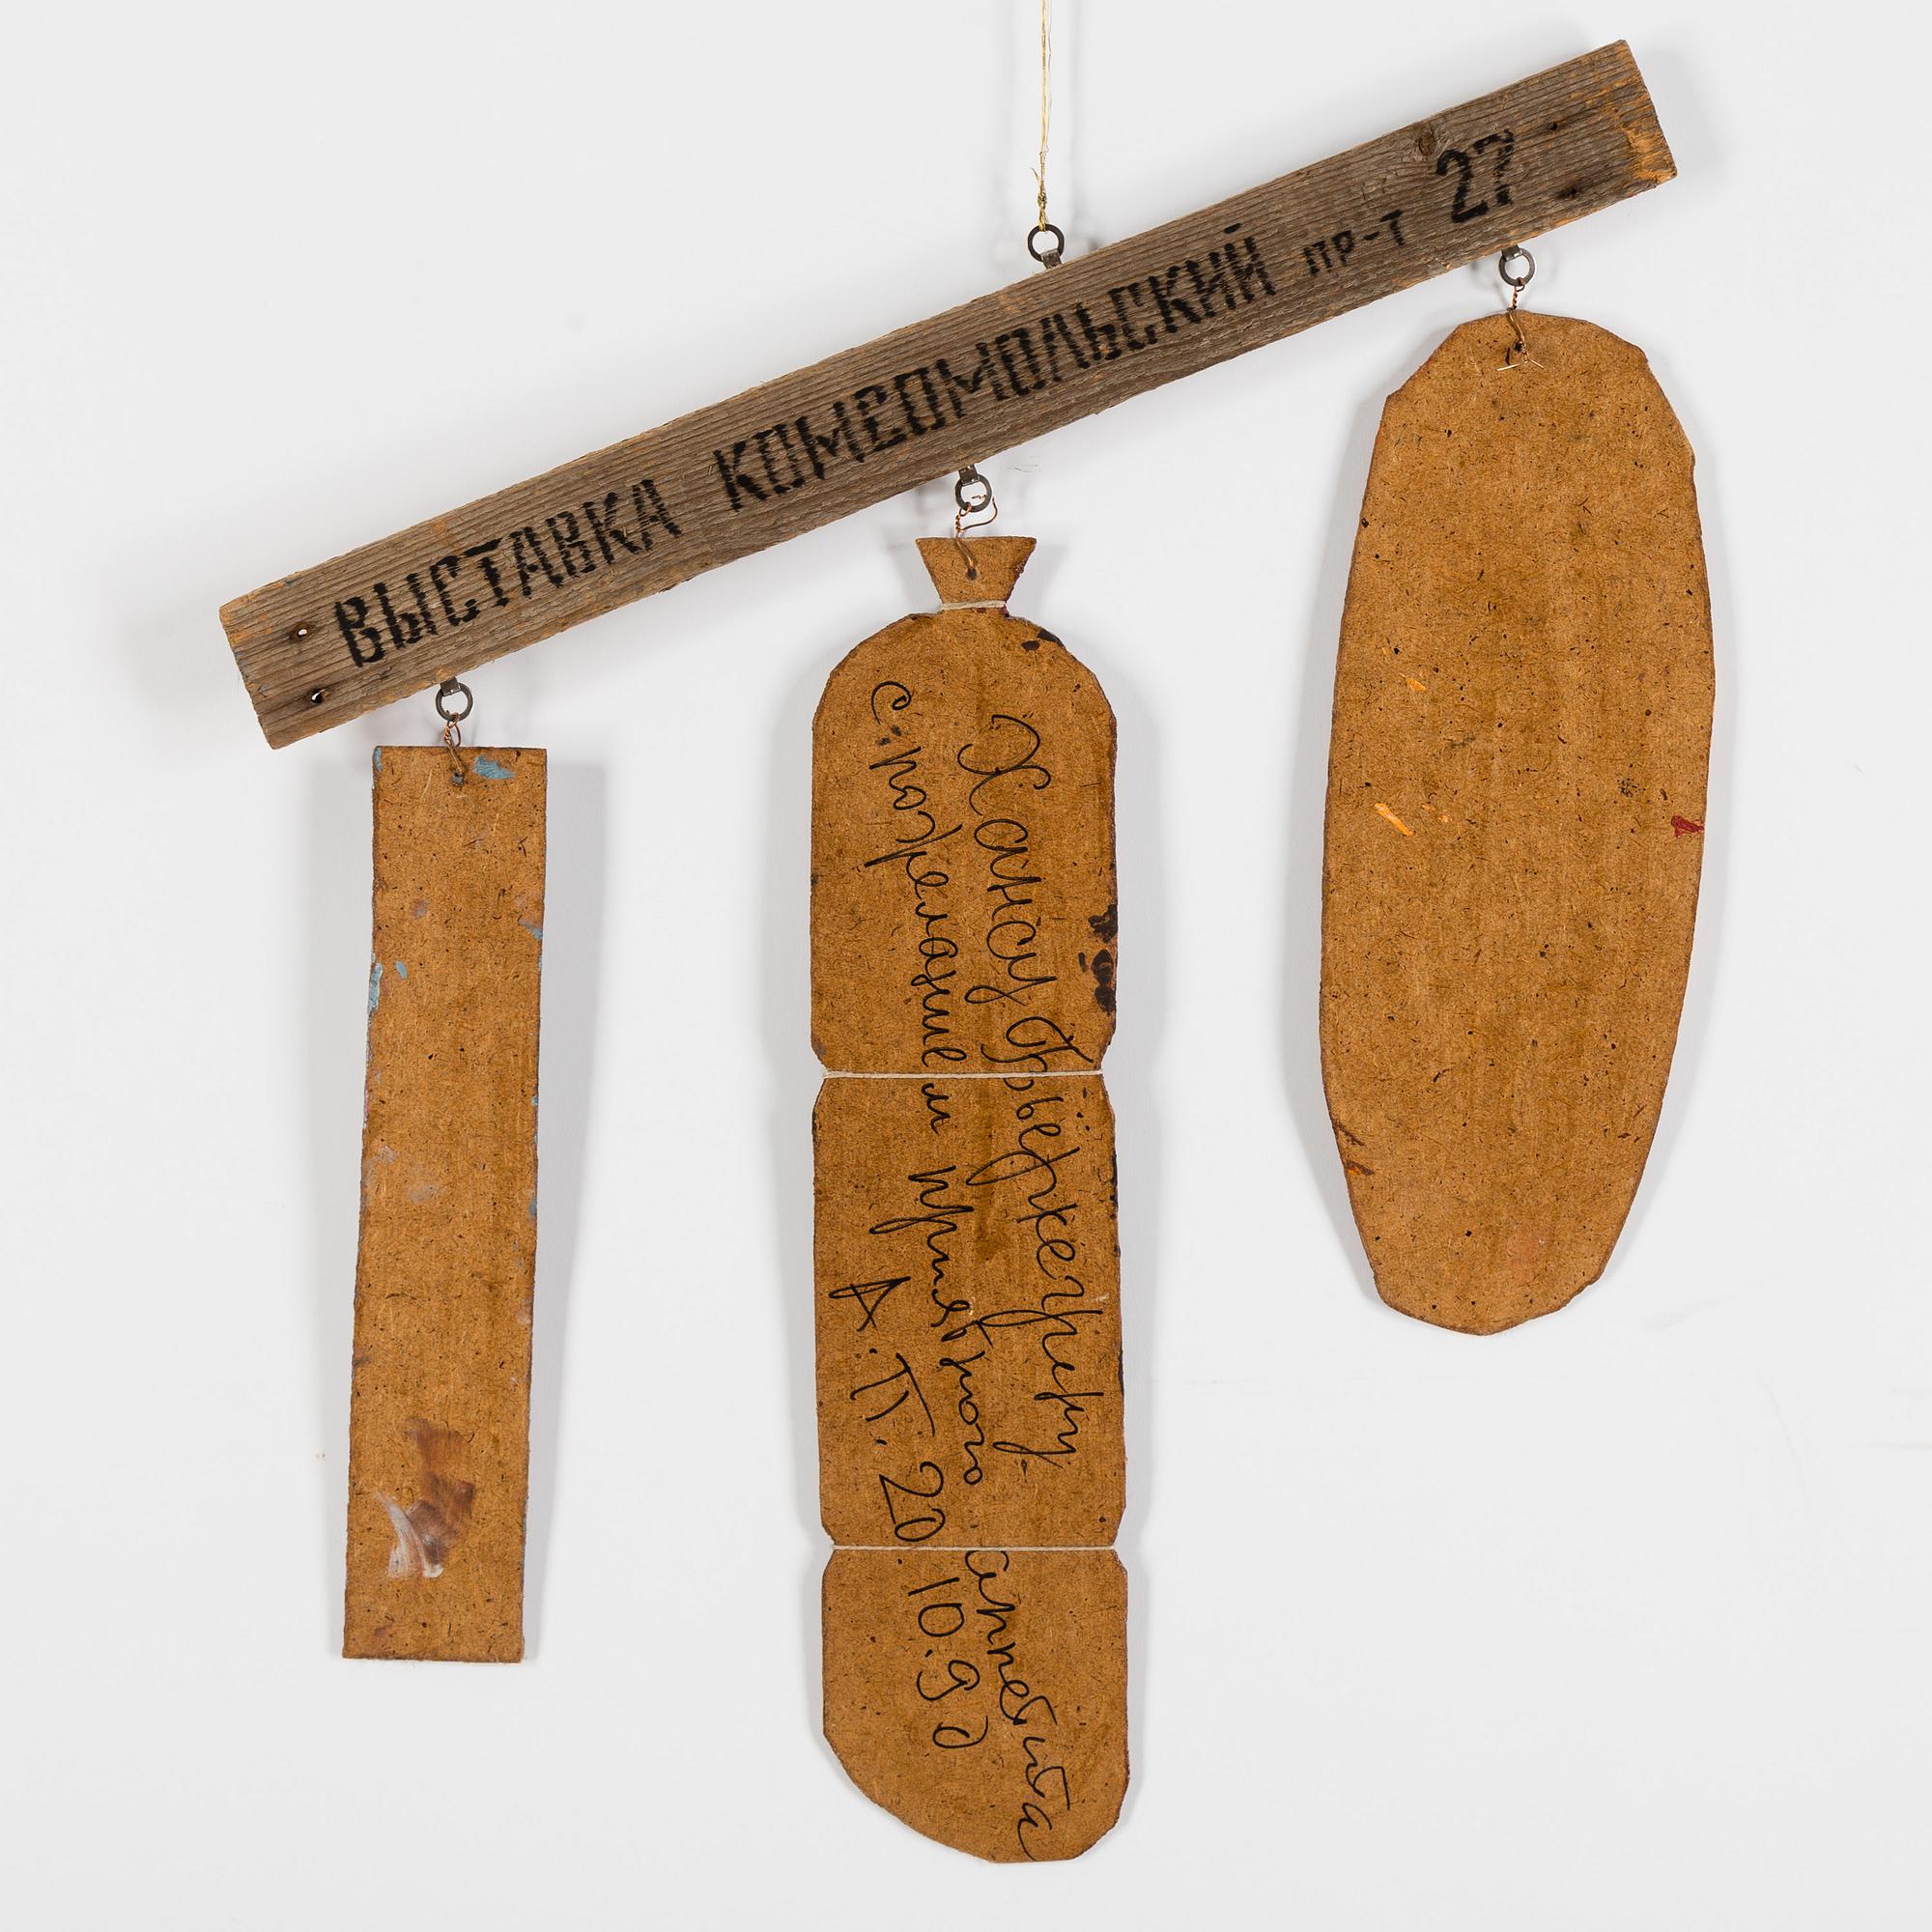 ВЫСТАВКА КОМСОМОЛЬСКИЙ пр-т 27
Хансу Бьёркегрену
с пожеланием приятного аппетита
А.П. 20.10.90